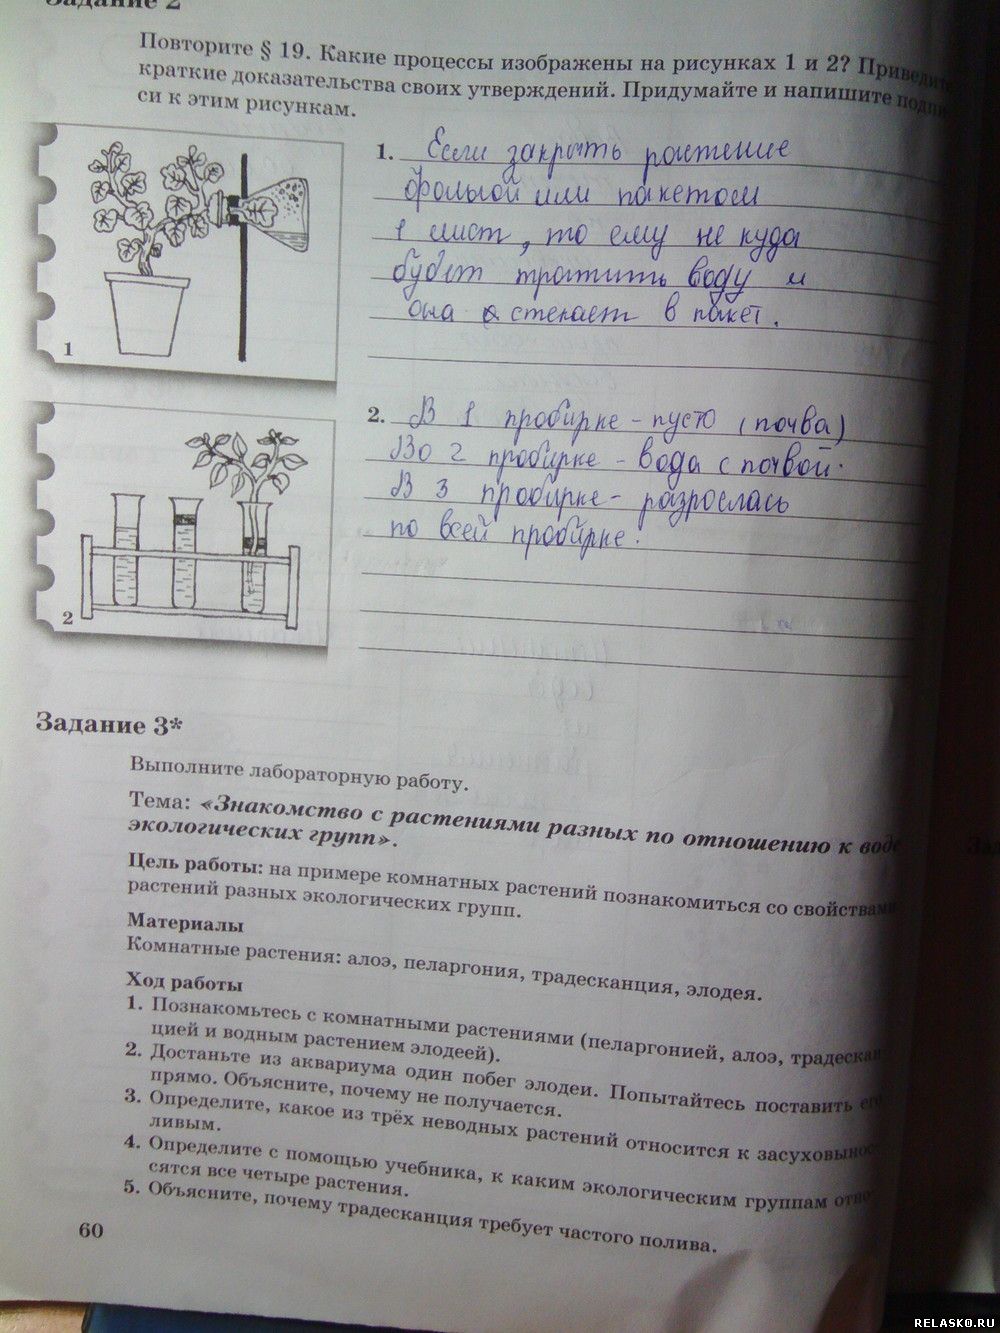 Задание 2
Повторите § 19. Какие процессы изображены на рисунках 1 и 2? Приведите
краткие доказательства своих утверждений. Придумайте и напишите подпи-
си к этим рисункам.
1. Если закрыть растение
фольгой или пакетом
1 лист, то ему не куда
будет тратить воду и
она стекает в пакет.
1
2. В 1 пробирке - пусто (почва)
Во 2 пробирке - вода с почвой.
В 3 пробирке - разрослась
по всей пробирке.
2
Задание 3*
Выполните лабораторную работу.
Тема: «Знакомство с растениями разных по отношению к воде
экологических групп».
Цель работы: на примере комнатных растений познакомиться со свойствами
растений разных экологических групп.
Материалы
Комнатные растения: алоэ, пеларгония, традесканция, элодея.
Ход работы
1. Познакомьтесь с комнатными растениями (пеларгонией, алоэ, традескан
цией и водным растением элодеей).
2. Достаньте из аквариума один побег элодеи. Попытайтесь поставить его
прямо. Объясните, почему не получается.
3. Определите, какое из трёх неводных растений относится к засуховынос
ливым.
4. Определите с помощью учебника, к каким экологическим группам отно
сятся все четыре растения.
5. Объясните, почему традесканция требует частого полива.
60
RELASKO.RU